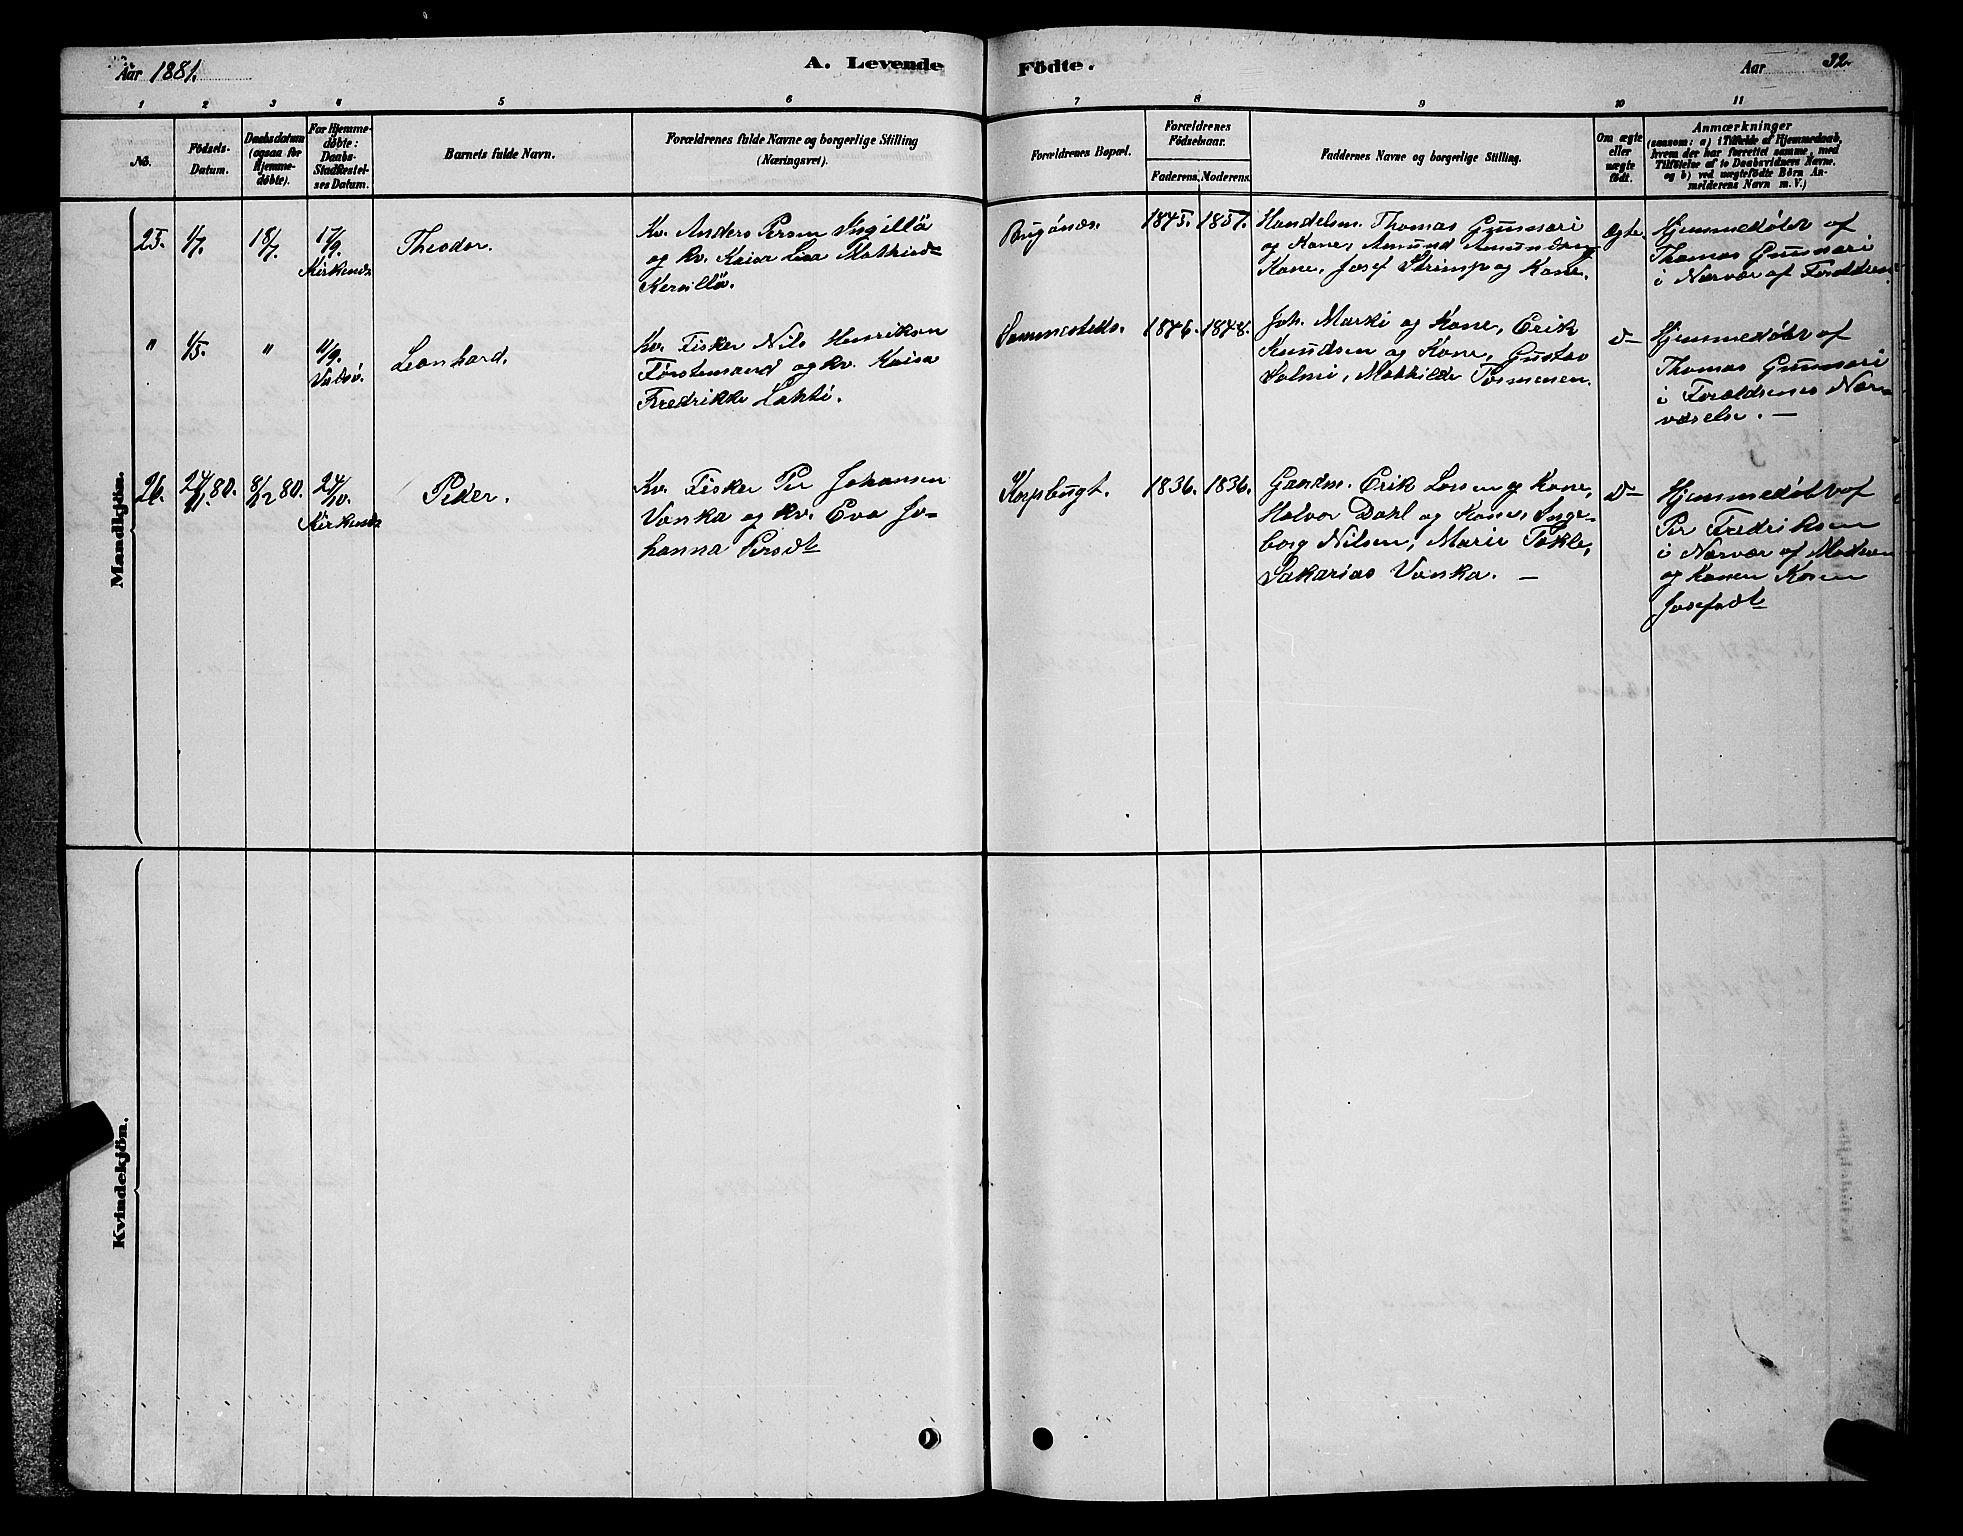 Aar 1881. A. Levende Födte. Aar 32.
1 2 3 4 5 6 7 8 9 10 11
No.
Födsels-Datum.
Daabsdatum (ogsaa for Hjemme-döbte).
For Hjemme-döbte: Daabs-Stadfæstel-ses Datum.
Barnets fulde Navn.
Forældrenes fulde Navne og borgerlige Stilling
(Næringsvei).
Forældrenes Bopæl.
Forældrenes Födselsaar.
Faderens. Moderens.
Faddernes Navne og borgerlige Stilling.
Om ægte eller uægte födt.
Anmærkninger
(saasom: a) i Tilfælde af Hjemmedaab,
hvem der har forrettet samme, med
Tilföielse af to Daabsvidners Navne,
og b) ved uægtefödte Börn An-
melderens Navn m. V.)
Mandkjön.
25. 4/7. 18/7. 17/9 Kirkenæs
Theodor.
Kv. Anders Persen Ingillä
og Kv. Kaisa Lisa Mathisdr
Kervillä.
Bugönæs. 1845. 1857.
Handelsm. Thomas Gunnari
og Kone, Amund Amundsen
Kone, Josef Strimp og Kone.
Ægte.
Hjemmedöbt af
Thomas Gunnari
i Nærvær af Forældren
" 4/5. " 11/9. Vadsö.
Leonhard.
Kv. Fisker Nils Henriksen
Förstemand og Kv. Kaisa
Fredrikke Lahti.
Sammesteds. 1846. 1848.
Joh. Marki og Kone, Erik
Knudsen og Kone, Gustav
Salmi, Mathilde Tormenen.
d—
Hjemmedöbt af
Thomas Gunnari
i Forældrenes Nær-
værelse. —
26. 80. 8/12 80. 24/10. Kirkenæs
Peder.
Kv. Fisker Per Johansen
Vanka og Kv. Eva Jo-
hanna Persdt
Korsbugt. 1836. 1836.
Gaardm. Erik Lassen og Kone,
Halvor Dahl og Kone, Inge-
borg Nilsen, Marie Tokle,
Sakarias Vanka. —
d—
Hjemmedöbt af
Per Fredriksen
i Nærvær af Moderen
og Konen Karen
Josefsdt
Kvindekjön.